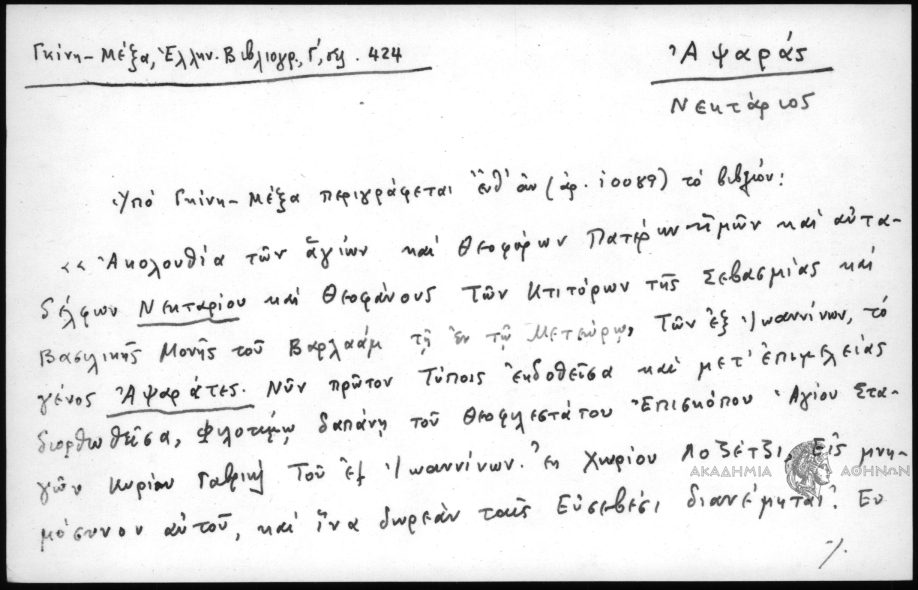 Γκίνη - Μέξα, Ἑλλην. Βιβλιογρ., Γ', σελ. 424
Ἀψαράς
Νεκτάριος
Ὑπό Γκίνη - Μέξα περιγράφεται ἐνθ' ἀν (ἀρ. 10089) τό βιβλίον:
<< Ἀκολουθία τῶν ἁγίων καί Θεοφόρων Πατέρων ἡμῶν καί αὐτα-
δέλφων Νεκταρίου καί Θεοφάνους τῶν Κτιτόρων τῆς Σεβασμίας καί
Βασιλικῆς Μονῆς τοῦ Βαρλαάμ τῇ ἐν τῷ Μετεώρῳ, τῶν ἐξ Ἰωαννίνων, τό
γένος Ἀψαράτες. Νῦν πρῶτον τύποις ἐκδοθεῖσα καί μετ' ἐπιμελείας
διορθωθεῖσα, φιλοτίμῳ δαπάνῃ τοῦ Θεοφιλεστάτου Ἐπισκόπου Ἁγίου Στα-
γῶν Κυρίου Γαβριήλ τοῦ ἐξ Ἰωαννίνων. Ἐκ Χωρίου Λοζέτζι, Εἰς μνη-
μόσυνον αὐτοῦ, καί ἵνα δωρεάν τοῖς Εὐσεβέσι διανέμηται. Ἐν
./.
ΑΚΑΔΗΜΙΑ ΑΘΗΝΩΝ